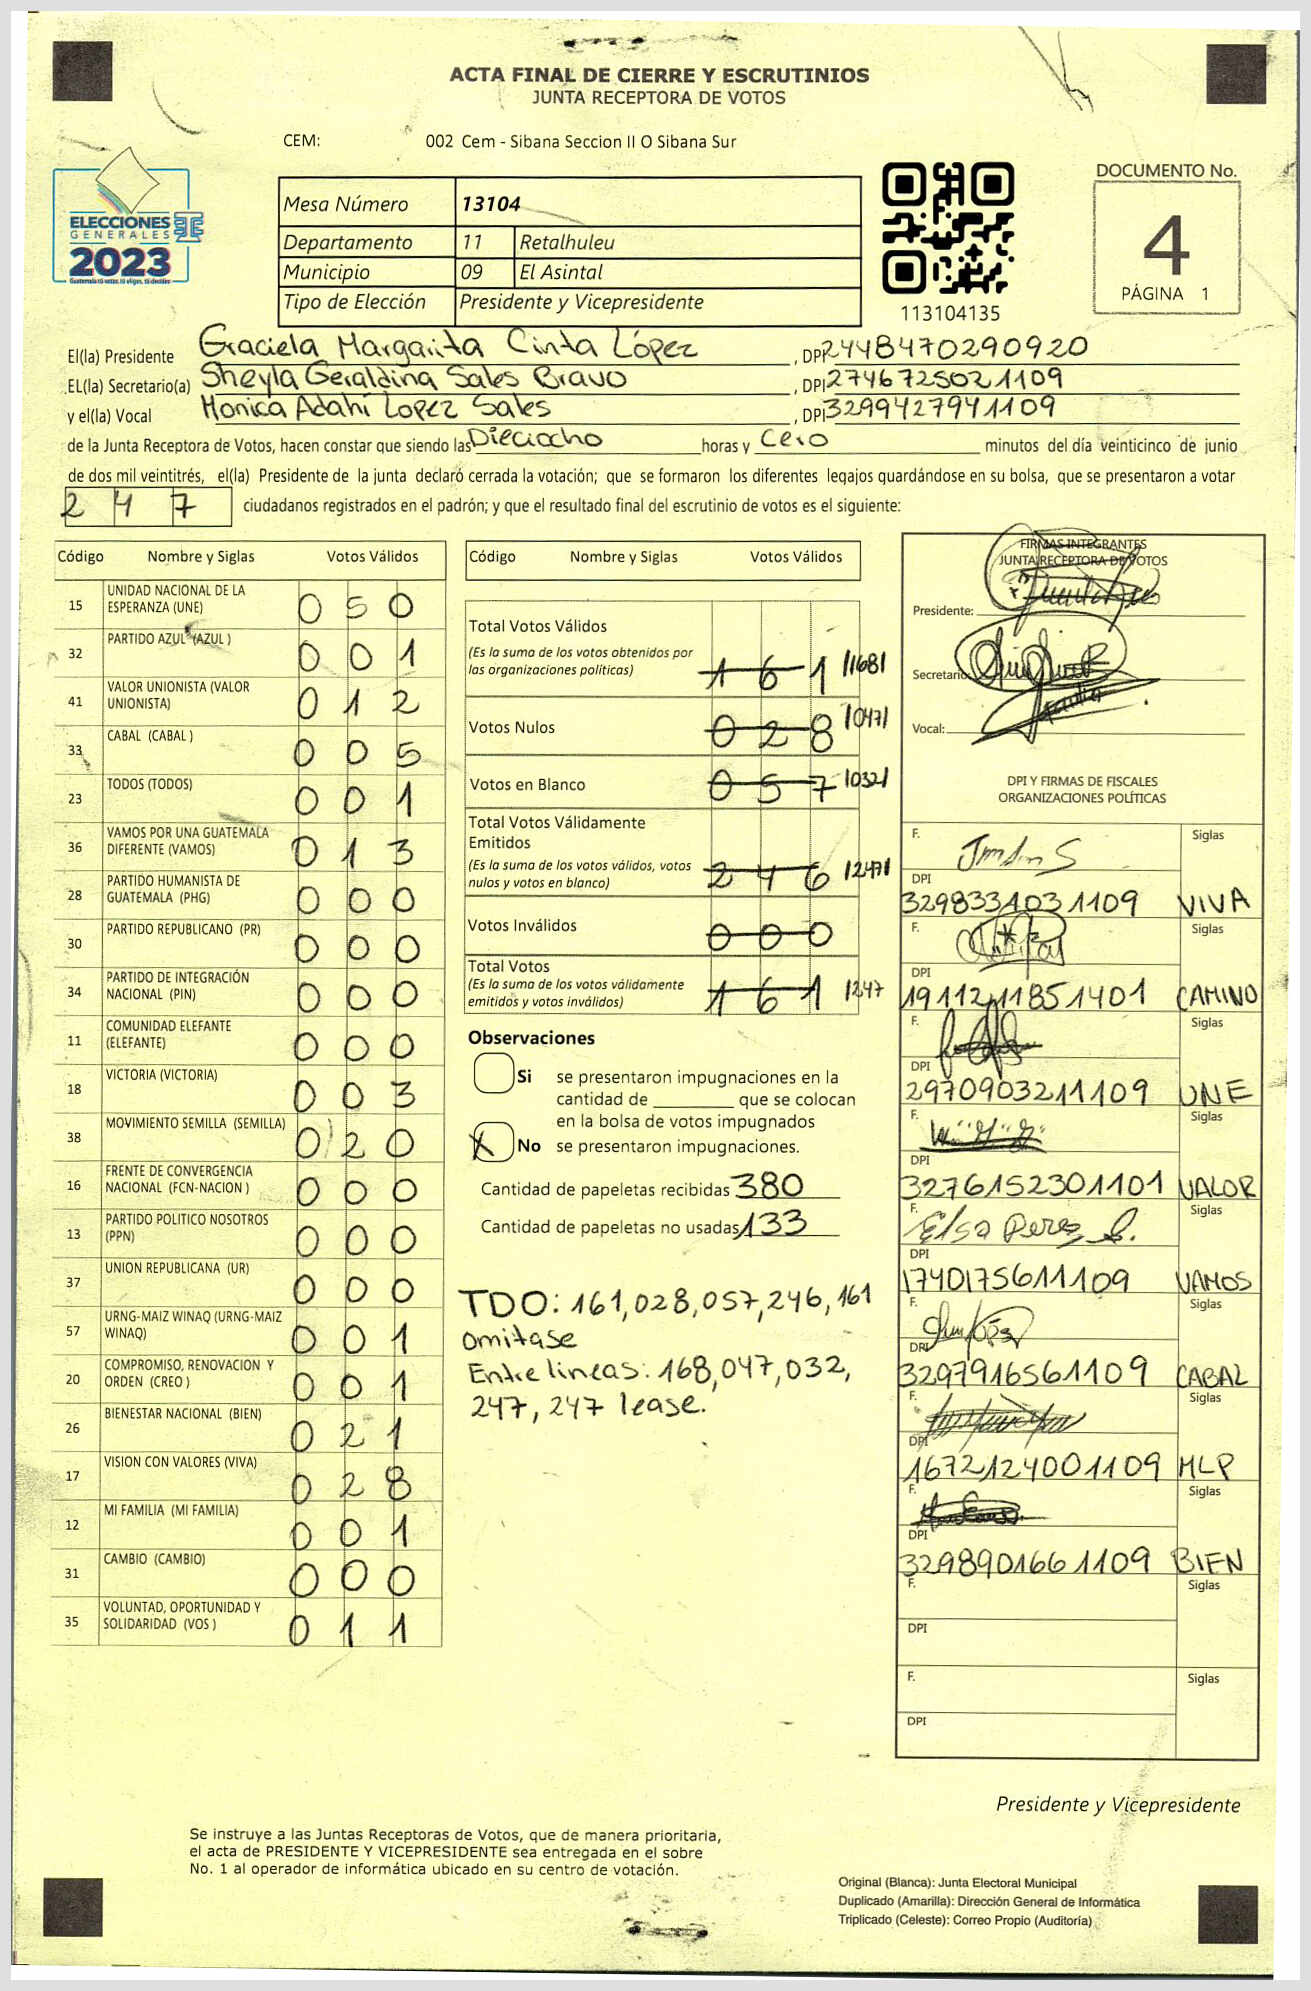 ACTA FINAL DE CIERRE Y ESCRUTINIOS
JUNTA RECEPTORA DE VOTOS
CEM: 002 Cem - Sibana Seccion II O Sibana Sur
ELECCIONES
GENERALES
2023
Mesa Número 13104
Departamento 11 Retalhuleu
Municipio 09 El Asintal
Tipo de Elección Presidente y Vicepresidente
113104135
DOCUMENTO No.
4
PÁGINA 1
El(la) Presidente Graciela Margarita Cinta López, DPI 2448470290920
EL(la) Secretario(a) Sheyla Geraldina Sales Bravo, DPI 2746725021109
y el(la) Vocal Monica Adahí Lopez Sales, DPI 3299427941109
de la Junta Receptora de Votos, hacen constar que siendo las Dieciocho horas y Cero minutos del día veinticinco de junio
de dos mil veintitrés, el(la) Presidente de la junta declaró cerrada la votación; que se formaron los diferentes legajos guardándose en su bolsa, que se presentaron a votar
247 ciudadanos registrados en el padrón; y que el resultado final del escrutinio de votos es el siguiente:
Código Nombre y Siglas Votos Válidos
15 UNIDAD NACIONAL DE LA
ESPERANZA (UNE) 050
32 PARTIDO AZUL (AZUL ) 001
41 VALOR UNIONISTA (VALOR
UNIONISTA) 012
33 CABAL (CABAL ) 005
23 TODOS (TODOS) 001
36 VAMOS POR UNA GUATEMALA
DIFERENTE (VAMOS) 013
28 PARTIDO HUMANISTA DE
GUATEMALA (PHG) 000
30 PARTIDO REPUBLICANO (PR) 000
34 PARTIDO DE INTEGRACIÓN
NACIONAL (PIN) 000
11 COMUNIDAD ELEFANTE
(ELEFANTE) 000
18 VICTORIA (VICTORIA) 003
38 MOVIMIENTO SEMILLA (SEMILLA) 020
16 FRENTE DE CONVERGENCIA
NACIONAL (FCN-NACION ) 000
13 PARTIDO POLITICO NOSOTROS
(PPN) 000
37 UNION REPUBLICANA (UR) 000
57 URNG-MAIZ WINAQ (URNG-MAIZ
WINAQ) 001
20 COMPROMISO, RENOVACION Y
ORDEN (CREO ) 001
26 BIENESTAR NACIONAL (BIEN) 021
17 VISION CON VALORES (VIVA) 028
12 MI FAMILIA (MI FAMILIA) 001
31 CAMBIO (CAMBIO) 000
35 VOLUNTAD, OPORTUNIDAD Y
SOLIDARIDAD (VOS ) 011
Código Nombre y Siglas Votos Válidos
Total Votos Válidos
(Es la suma de los votos obtenidos por
las organizaciones políticas) 161 /168/
Votos Nulos 028 /047/
Votos en Blanco 057 /032/
Total Votos Válidamente
Emitidos
(Es la suma de los votos válidos, votos
nulos y votos en blanco) 246 /247/
Votos Inválidos 000
Total Votos
(Es la suma de los votos válidamente
emitidos y votos inválidos) 161 /247
Observaciones
Si se presentaron impugnaciones en la
cantidad de ________ que se colocan
en la bolsa de votos impugnados
X No se presentaron impugnaciones.
Cantidad de papeletas recibidas 380
Cantidad de papeletas no usadas 133
TDO: 161,028,057,246,161
omitase
Entre lineas: 168,047,032,
247, 247 lease.
FIRMAS INTEGRANTES
JUNTA RECEPTORA DE VOTOS
Presidente:
Secretario:
Vocal:
DPI Y FIRMAS DE FISCALES
ORGANIZACIONES POLÍTICAS
F. Siglas
DPI
3298331031109 VIVA
F. Siglas
DPI
1911211851401 CAMINO
F. Siglas
DPI
2970903211109 UNE
F. Siglas
DPI
3276152301101 VALOR
F. Elsa Perez S. Siglas
DPI
1740175611109 VAMOS
F. Siglas
DPI
3297916561109 CABAL
F. Siglas
DPI
1672124001109 MLP
F. Siglas
DPI
3298901661109 BIEN
F. Siglas
DPI
F. Siglas
DPI
Presidente y Vicepresidente
Se instruye a las Juntas Receptoras de Votos, que de manera prioritaria,
el acta de PRESIDENTE Y VICEPRESIDENTE sea entregada en el sobre
No. 1 al operador de informática ubicado en su centro de votación.
Original (Blanca): Junta Electoral Municipal
Duplicado (Amarilla): Dirección General de Informática
Triplicado (Celeste): Correo Propio (Auditoría)